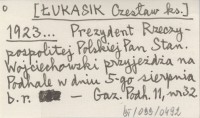 [ŁUKASIK Czesław ks.]
1923... Prezydent Rzeczy-
pospolitej Polskiej Pan Stan.
Wojciechowski przyjeżdża na
Podhale w dniu 5-go sierpnia
b.r. — Gaz. Podh. 11, nr 32
bf/033/0492